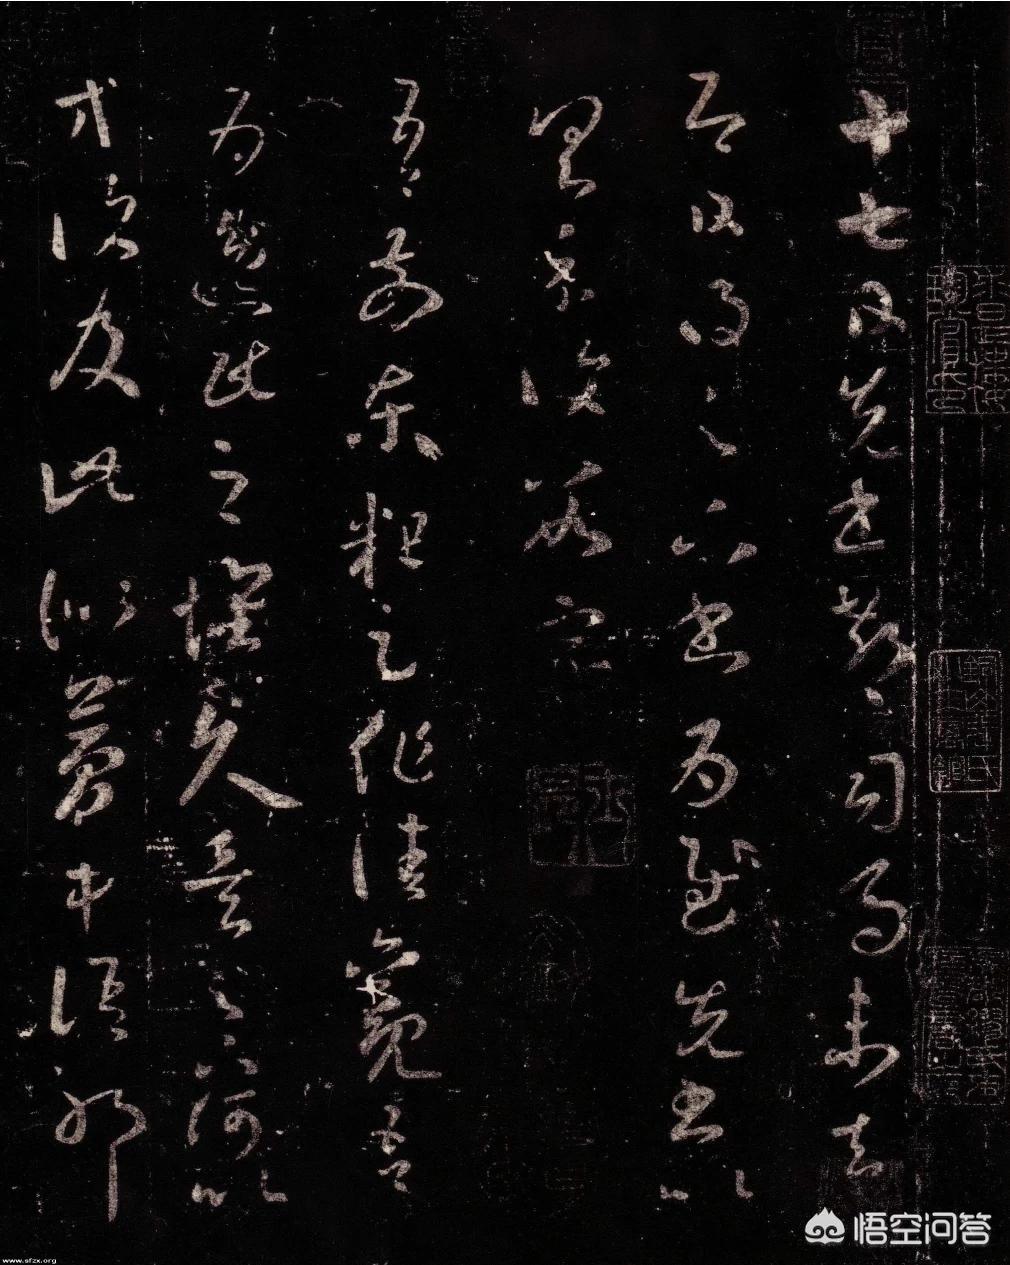 十七日先書郗司馬未去
即日得足下書為慰先書以
具示復數字
吾前東粗足作佳觀吾
為逸民之懷久矣足下何以
方復及此似夢中語耶
悟空问答
www.sfzx.org